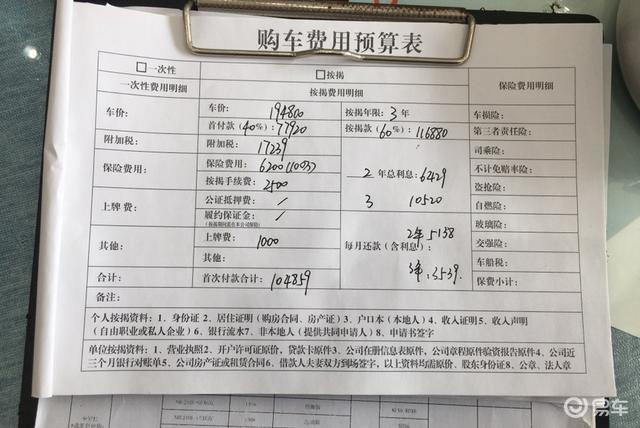 购车费用预算表
□一次性 □按揭 保险费用明细
一次性费用明细 按揭费用明细
车价: 车价: 194800 按揭年限: 3年 车损险:
首付款(40%): 77920 按揭款(60%): 116880 第三者责任险:
附加税: 附加税: 17239 司乘险:
保险费用: 保险费用: 6200(1003) 2 年总利息: 6429 不计免赔率险:
按揭手续费: 2500 盗抢险:
上牌费: 公证抵押费: / 3 10520 自燃险:
履约保证金: / 玻璃险:
(按揭期间需在本公司保险)
其他: 上牌费: 1000 每月还款(含利息): 2年5138 交强险:
其他: 3年:3539 车船税:
合计: 首次付款合计: 104859 保费小计:
备注:
个人按揭资料:1、身份证2、居住证明(购房合同、房产证)3、户口本(本地人)4、收入证明5、收入声明
(自由职业或私人企业)6、银行流水7、非本地人(提供共同申请人)8、申请书签字
单位按揭资料:1、营业执照2、开户许可证原价,贷款卡原件3、公司在册信息表原件,公司章程原件验资报告原件4、公司近
三个月银行对账单5、公司房产证或租赁合同6、借款人夫妻双方到场签字,以上资料均需原价、股东身份证8、公章、法人章
易车